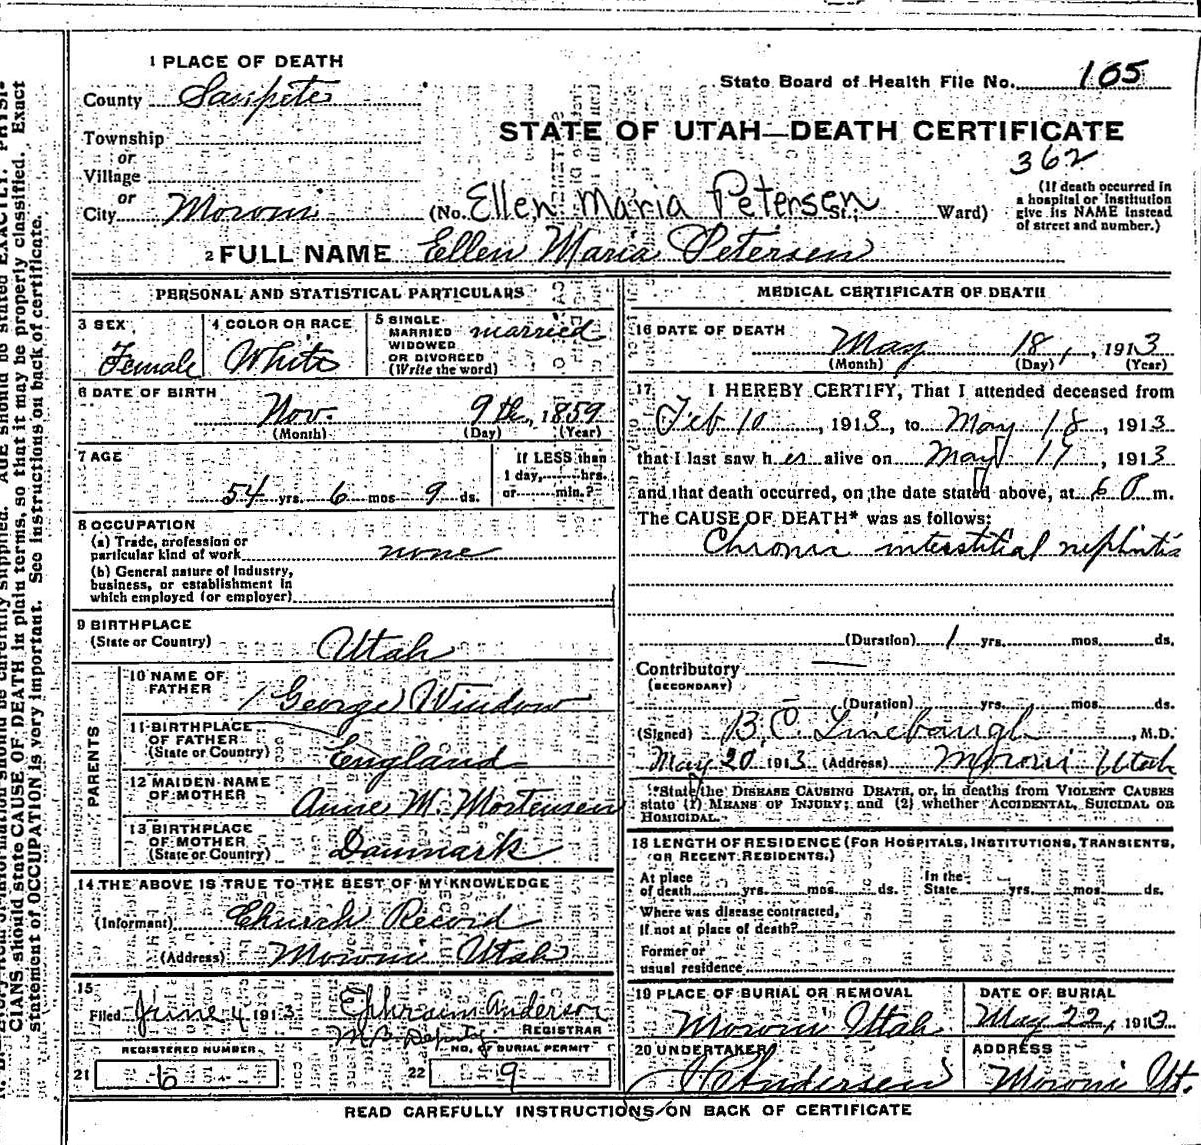 1 PLACE OF DEATH
State Board of Health File No. 105
County Sanpete
STATE OF UTAH—DEATH CERTIFICATE
362
Township
or
Village
or
City Moroni (No. Ellen Maria Petersen St.; Ward)
(If death occurred in a hospital or institution give its NAME instead of street and number.)
2 FULL NAME Ellen Maria Petersen
PERSONAL AND STATISTICAL PARTICULARS
3 SEX Female
4 COLOR OR RACE White
5 SINGLE MARRIED WIDOWED OR DIVORCED (Write the word) married
6 DATE OF BIRTH
Nov. 9th, 1859
(Month) (Day) (Year)
7 AGE
54 yrs. 6 mos 9 ds.
If LESS than
1 day, hrs.
or min.?
8 OCCUPATION
(a) Trade, profession or
particular kind of work none
(b) General nature of Industry,
business, or establishment in
which employed (or employer)
9 BIRTHPLACE
(State or Country) Utah
PARENTS
10 NAME OF FATHER George Window
11 BIRTHPLACE OF FATHER (State or Country) England
12 MAIDEN NAME OF MOTHER Anne M. Mortensen
13 BIRTHPLACE OF MOTHER (State or Country) Danmark
14 THE ABOVE IS TRUE TO THE BEST OF MY KNOWLEDGE
(Informant) Church Record
(Address) Moroni Utah
15
Filed June 4 1913 Ephraim Anderson
REGISTRAR
Deputy
REGISTERED NUMBER
NO. of BURIAL PERMIT
21 6
22 9
MEDICAL CERTIFICATE OF DEATH
16 DATE OF DEATH
May 18, 1913
(Month) (Day) (Year)
17 I HEREBY CERTIFY, That I attended deceased from
Feb 10, 1913, to May 18, 1913
that I last saw her alive on May 17, 1913
and that death occurred, on the date stated above, at 6 P m.
The CAUSE OF DEATH* was as follows:
Chronic interstitial nephritis
(Duration) 1 yrs. mos. ds.
Contributory
(SECONDARY)
(Duration) yrs. mos. ds.
(Signed) B. C. Linebaugh, M.D.
May 20 1913 (Address) Moroni Utah
*State the DISEASE CAUSING DEATH, or, in deaths from VIOLENT CAUSES
state (1) MEANS OF INJURY; and (2) whether ACCIDENTAL, SUICIDAL OR
HOMICIDAL.
18 LENGTH OF RESIDENCE (FOR HOSPITALS, INSTITUTIONS, TRANSIENTS,
OR RECENT RESIDENTS.)
At place In the
of death yrs. mos. ds. State yrs. mos. ds.
Where was disease contracted,
If not at place of death?
Former or
usual residence
19 PLACE OF BURIAL OR REMOVAL
Moroni Utah
DATE OF BURIAL
May 22, 1913
20 UNDERTAKER
Andersen
ADDRESS
Moroni Ut.
READ CAREFULLY INSTRUCTIONS ON BACK OF CERTIFICATE
CIANS should state CAUSE OF DEATH in plain terms, so that it may be properly classified. Exact
statement of OCCUPATION is very important. See instructions on back of certificate.